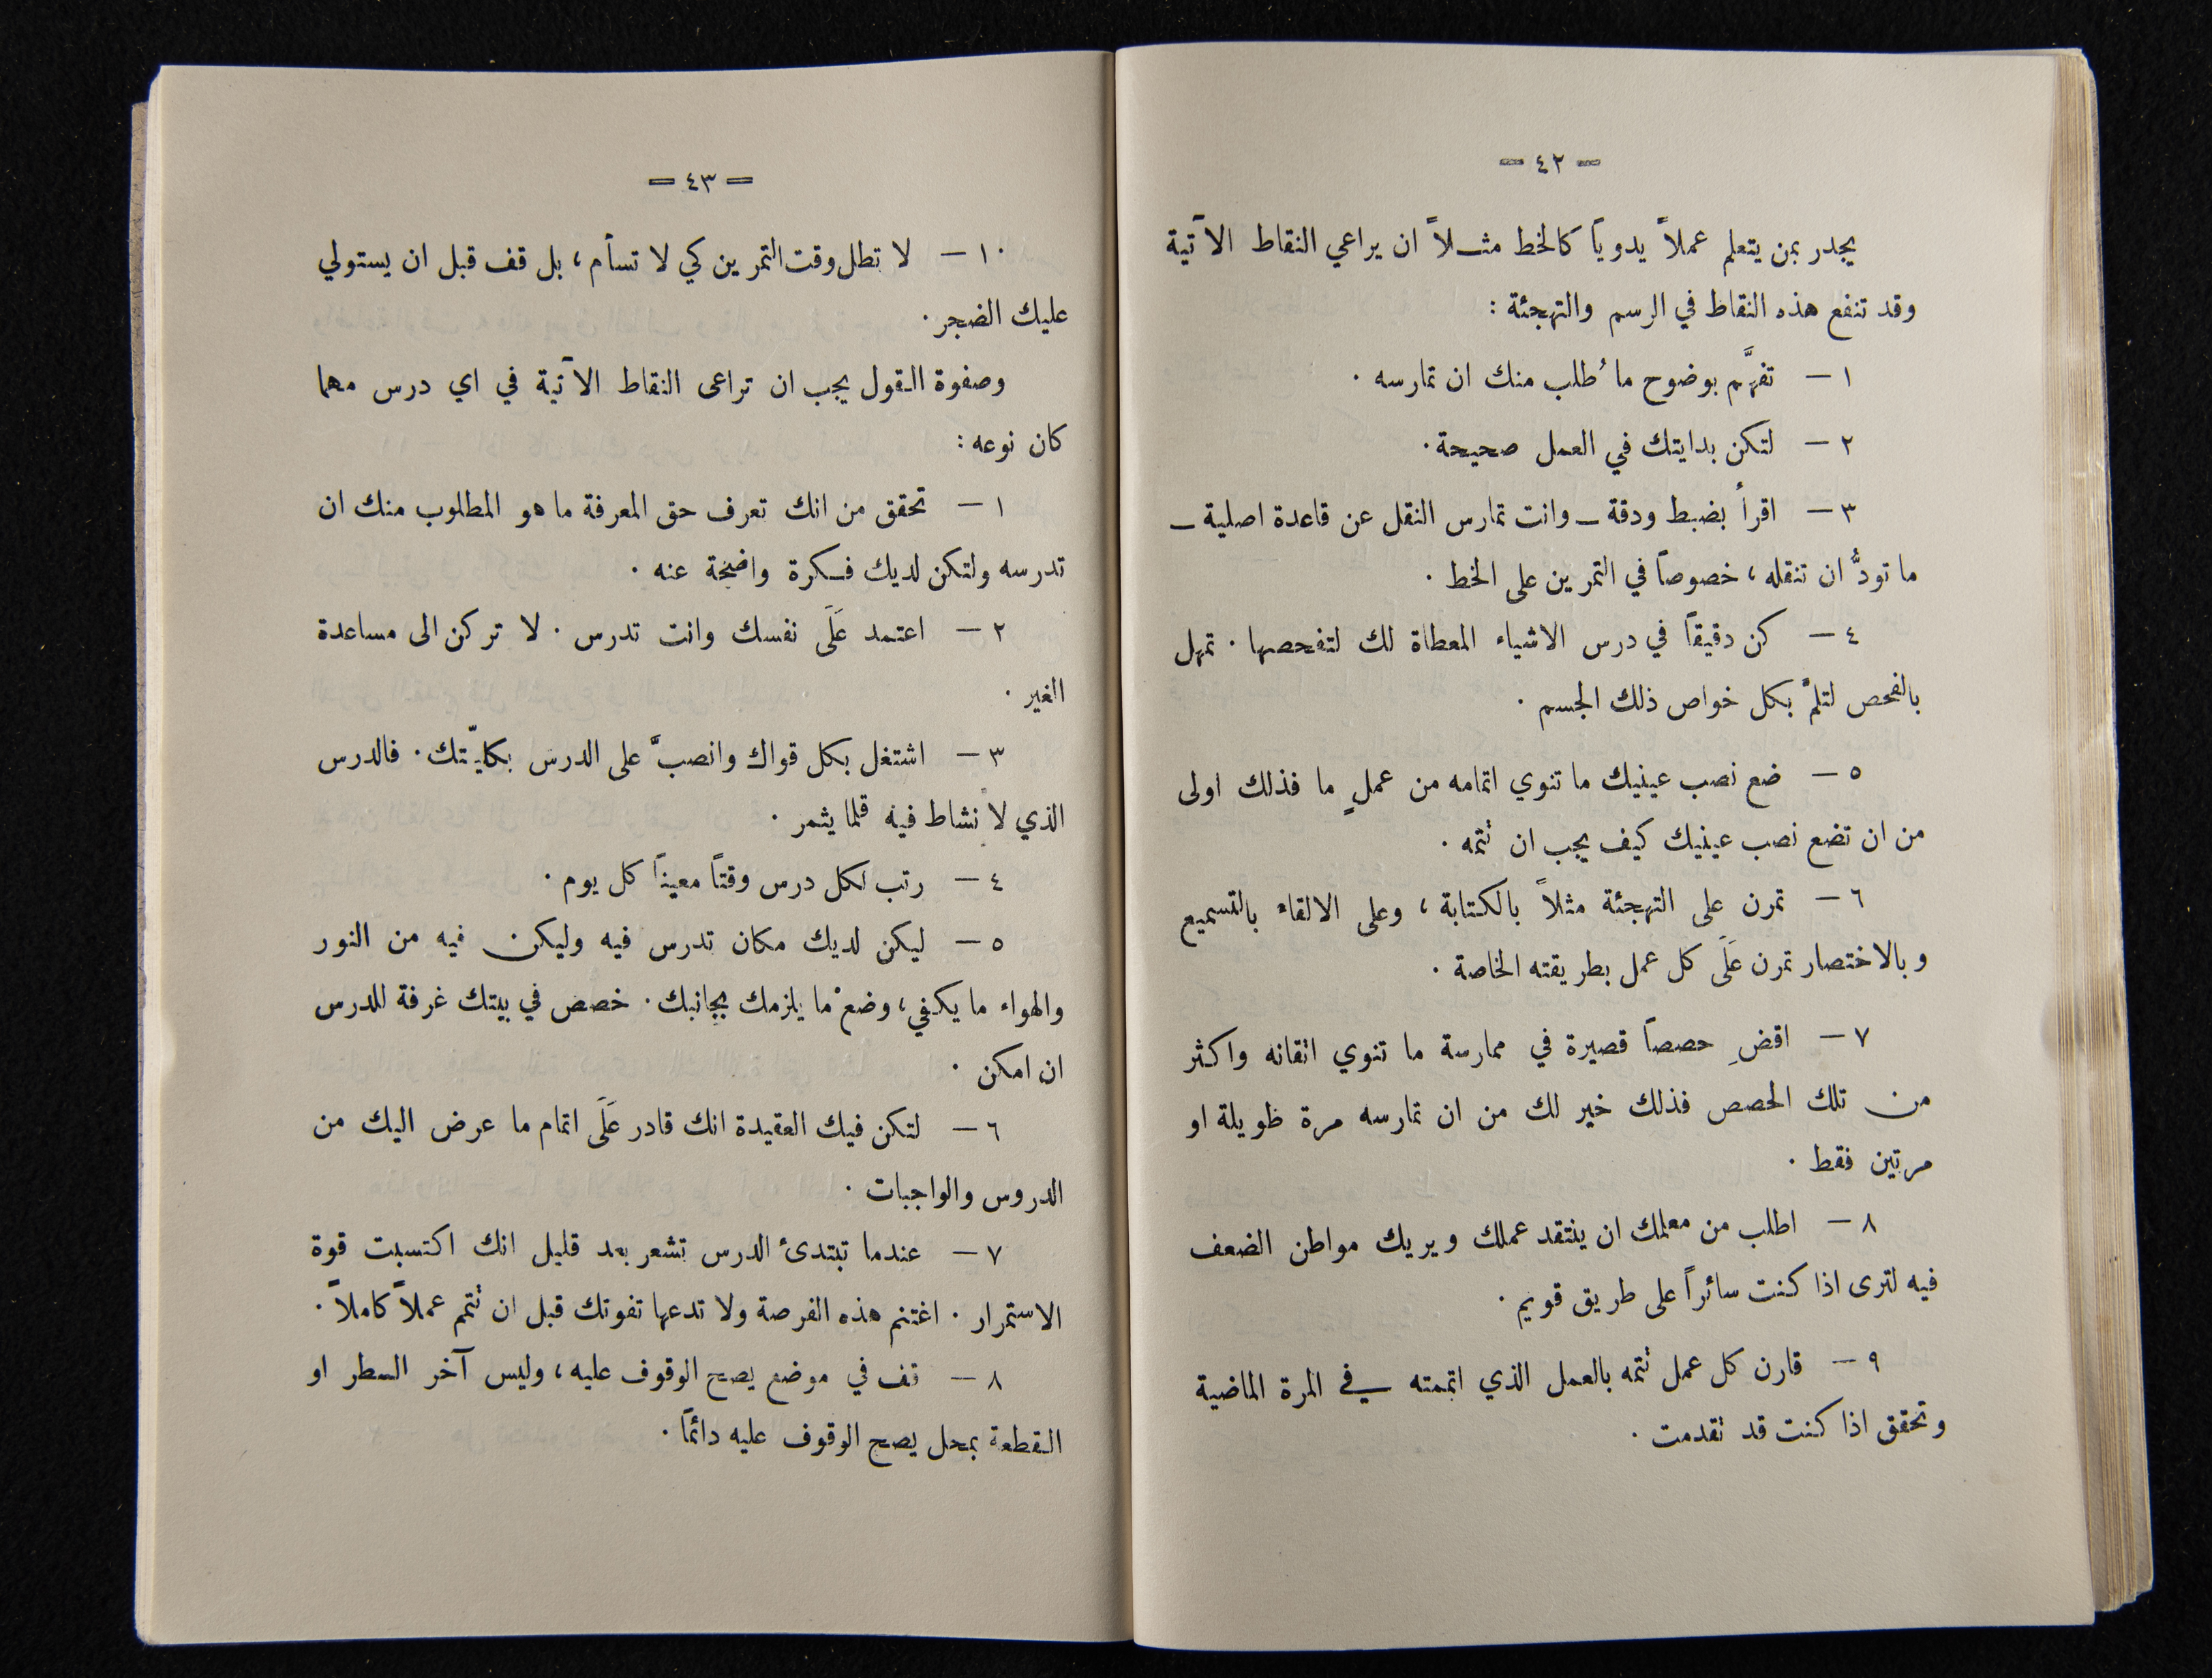 — ٤٢ —
يجدر بمن يتعلم عملاً يدوياً كالخط مثـلاً ان يراعي النقاط الآتية
وقد تنفع هذه النقاط في الرسم والتهجئة :
١ — تفهَّم بوضوح ما طُلب منك ان تمارسه .
٢ — لتكن بدايتك في العمل صحيحة .
٣ — اقرأ بضبط ودقة — وانت تمارس النقل عن قاعدة اصلية —
ما تودُّ ان تنقله ، خصوصاً في التمرين على الخط .
٤ — كن دقيقاً في درس الاشياء المعطاة لك لتفحصها . تمهل
بالفحص لتلمَّ بكل خواص ذلك الجسم .
٥ — ضع نصب عينيك ما تنوي اتمامه من عملٍ ما فذلك اولى
من ان تضع نصب عينيك كيف يجب ان تتمه .
٦ — تمرن على التهجئة مثلاً بالكتابة ، وعلى الالقاء بالتسميع
وبالاختصار تمرن عَلَى كل عمل بطريقته الخاصة .
٧ — اقضِ حصصاً قصيرة في ممارسة ما تنوي اتقانه واكثر
من تلك الحصص فذلك خير لك من ان تمارسه مرة طويلة او
مرتين فقط .
٨ — اطلب من معلمك ان ينتقد عملك ويريك مواطن الضعف
فيه لترى اذا كنت سائراً على طريق قويم .
٩ — قارن كل عمل تتمه بالعمل الذي اتممته في المرة الماضية
وتحقق اذا كنت قد تقدمت .
— ٤٣ —
١٠ — لا تطل وقت التمرين كي لا تسأم ، بل قف قبل ان يستولي
عليك الضجر .
وصفوة القول يجب ان تراعى النقاط الآتية في اي درس مهما
كان نوعه :
١ — تحقق من انك تعرف حق المعرفة ما هو المطلوب منك ان
تدرسه ولتكن لديك فـكرة واضحة عنه .
٢ — اعتمد عَلَى نفسك وانت تدرس . لا تركن الى مساعدة
الغير .
٣ — اشتغل بكل قواك وانصبَّ على الدرس بكليّتك . فالدرس
الذي لا نشاط فيه قلما يثمر .
٤ — رتب لكل درس وقتاً معيناً كل يوم .
٥ — ليكن لديك مكان تدرس فيه وليكن فيه من النور
والهواء ما يكفي ، وضعْ ما يلزمك بجانبك . خصص في بيتك غرفة للدرس
ان امكن .
٦ — لتكن فيك العقيدة انك قادر عَلَى اتمام ما عرض اليك من
الدروس والواجبات .
٧ — عندما تبتدئ الدرس تشعر بعد قليل انك اكتسبت قوة
الاستمرار . اغتنم هذه الفرصة ولا تدعها تفوتك قبل ان تتمم عملاً كاملاً .
٨ — قف في موضع يصح الوقوف عليه ، وليس آخر السطر او
القطعة بمحل يصح الوقوف عليه دائماً .